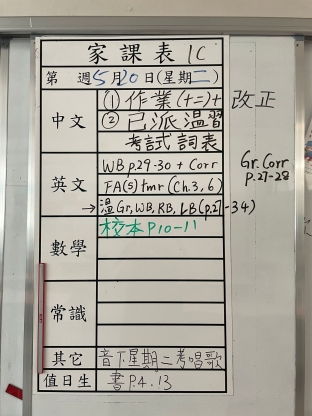 家課表 1C
第 週 5月20日(星期二)
中文
① 作業(十二)+ 改正
② 已派溫習
考試詞表
英文
WB p.29-30 + Corr
Gr. Corr
p.27-28
FA(5) tmr (Ch.3, 6)
→ 溫Gr, WB, RB, LB (p.27-34)
數學
校本 P10-11
常識
其它
音下星期二考唱歌
值日生
書P.4.13